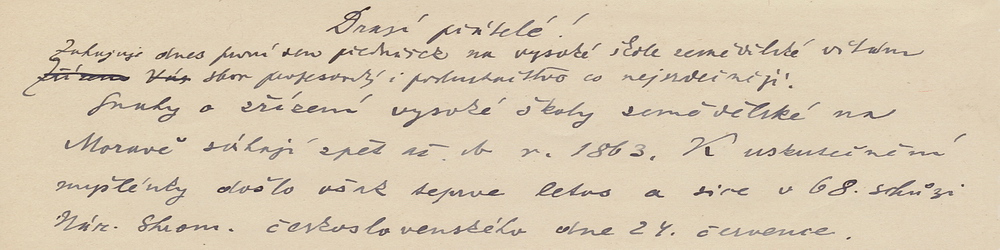 Drazí přátelé!
Zahajuje dnes první den přednášek na vysoké škole zemědělské vítám
Vás sbor profesorský i posluchačstvo co nejsrdečněji!
Snahy o zřízení vysoké školy zemědělské na
Moravě sáhají zpět až do r. 1863. K uskutečnění
myšlénky došlo však teprve letos a sice v 68. schůzi
Nár. Shrom. československého dne 24. července.